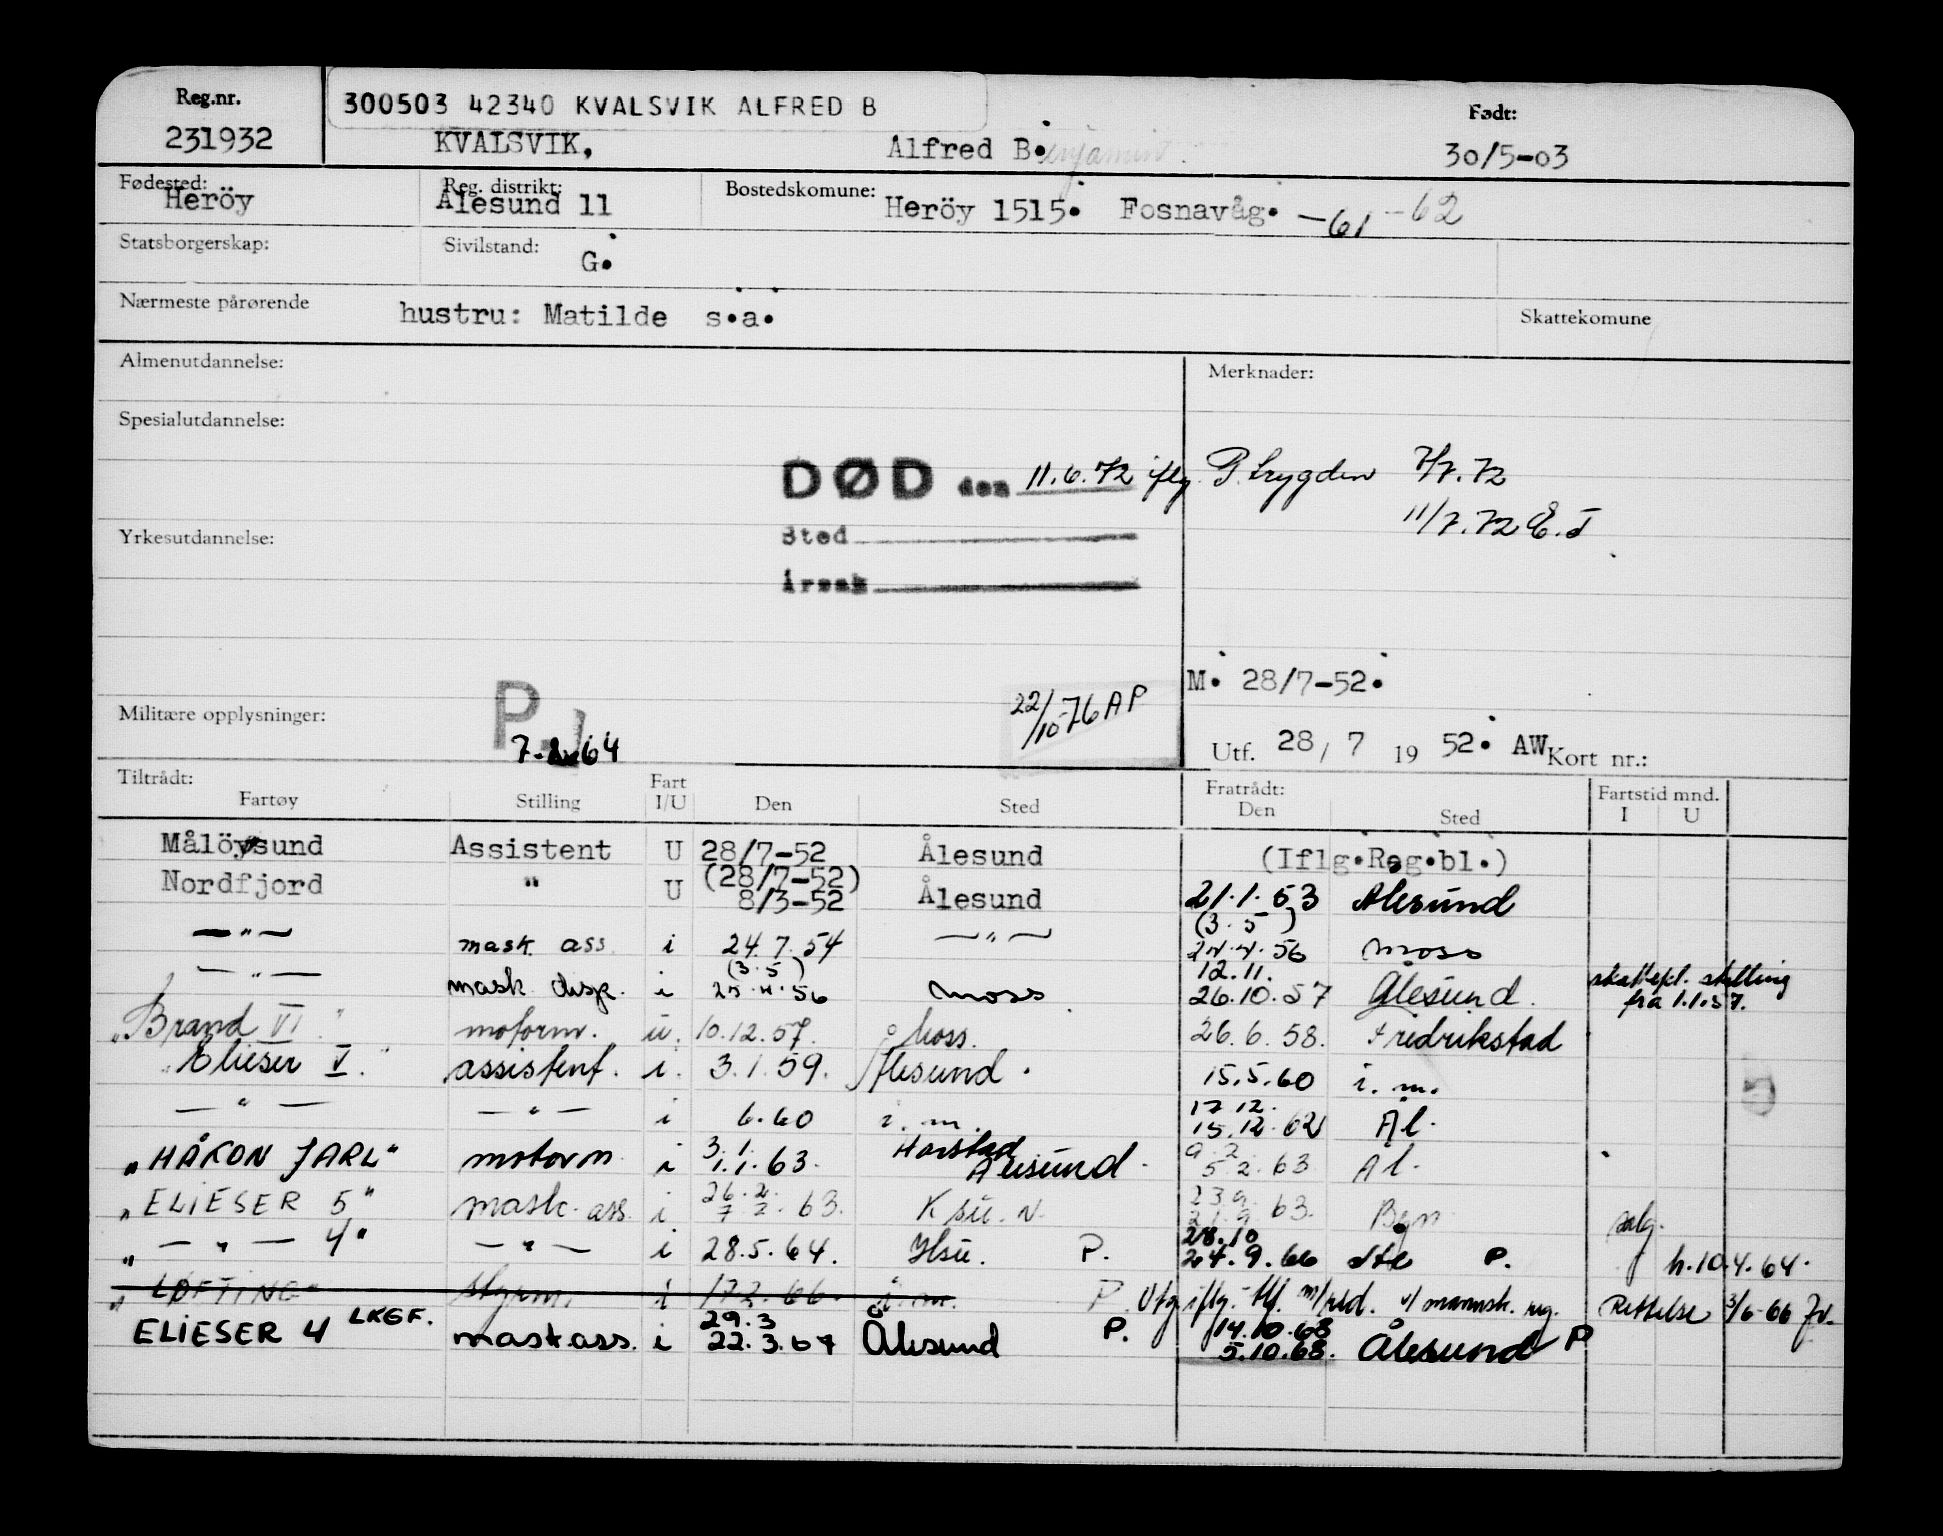 Reg.nr. 300503 42340 KVALSVIK ALFRED B Født:
231932 KVALSVIK, Alfred B. enjamin. 30/5-03
Fødested: Reg. distrikt: Bostedskomune:
Heröy Ålesund 11 Heröy 1515. Fosnavåg. -61 -62
Statsborgerskap: Sivilstand: G.
Nærmeste pårørende hustru: Matilde s.a. Skattekomune
Almenutdannelse: Merknader:
Spesialutdannelse:
DØD den 11.6.72 iflg. P. trygden 7/7.72
11/7.72 E.J
Sted
Yrkesutdannelse:
Årsak
M. 28/7-52.
P.
22/10-76 AP
Militære opplysninger: 7.8.64
Utf. 28/ 7 19 52. AW Kort nr.:
Tiltrådt: Fratrådt: Fartstid mnd.
Fartøy Stilling Fart I/U Den Sted Den Sted I U
Målöysund Assistent U 28/7-52 Ålesund (Iflg.Reg.bl.)
Nordfjord " U (28/7-52) 8/3-52 Ålesund 21.1.53 Ålesund
— " — mask. ass. i 24.7.54 — " — (3.5) 24.4.56 Moss
— " — mask. disp. i (3.5) 25.4.56 Moss 12.11. 26.10.57 Ålesund. skattepl. stilling fra 1.1.57.
"Brand VI" motorm. u. 10.12.57. Moss. 26.6.58. Fredrikstad
"Elieser V." assistent. i. 3.1.59. Ålesund. 15.5.60 i.m.
— " — — " — i 6.60 i.m. 17.12. 15.12.62 Ål.
"HÅKON JARL" motorm i 3.1. 1.1.63. Harstad Ålesund. 9.2. 5.2.63 Ål.
"ELIESER 5" mask. ass. i 26.2. 7.2.63. K.su.N. 23.9. 21.9.63. Bgn salg.
" — " — 4" — " — i 28.5.64. Hsu. P. 28.10 24.9.66 P. h.10.4.64.
"LØFTING" styrm. i 17.2.66. i.m. P. Utg iflg. tlf. m/red. v/ mannsk. reg. Rettelse 3/6-66
ELIESER 4 LKGF. mask ass. i 29.3 22.3.67 Ålesund P. 14.10.68 5.10.68. Ålesund P